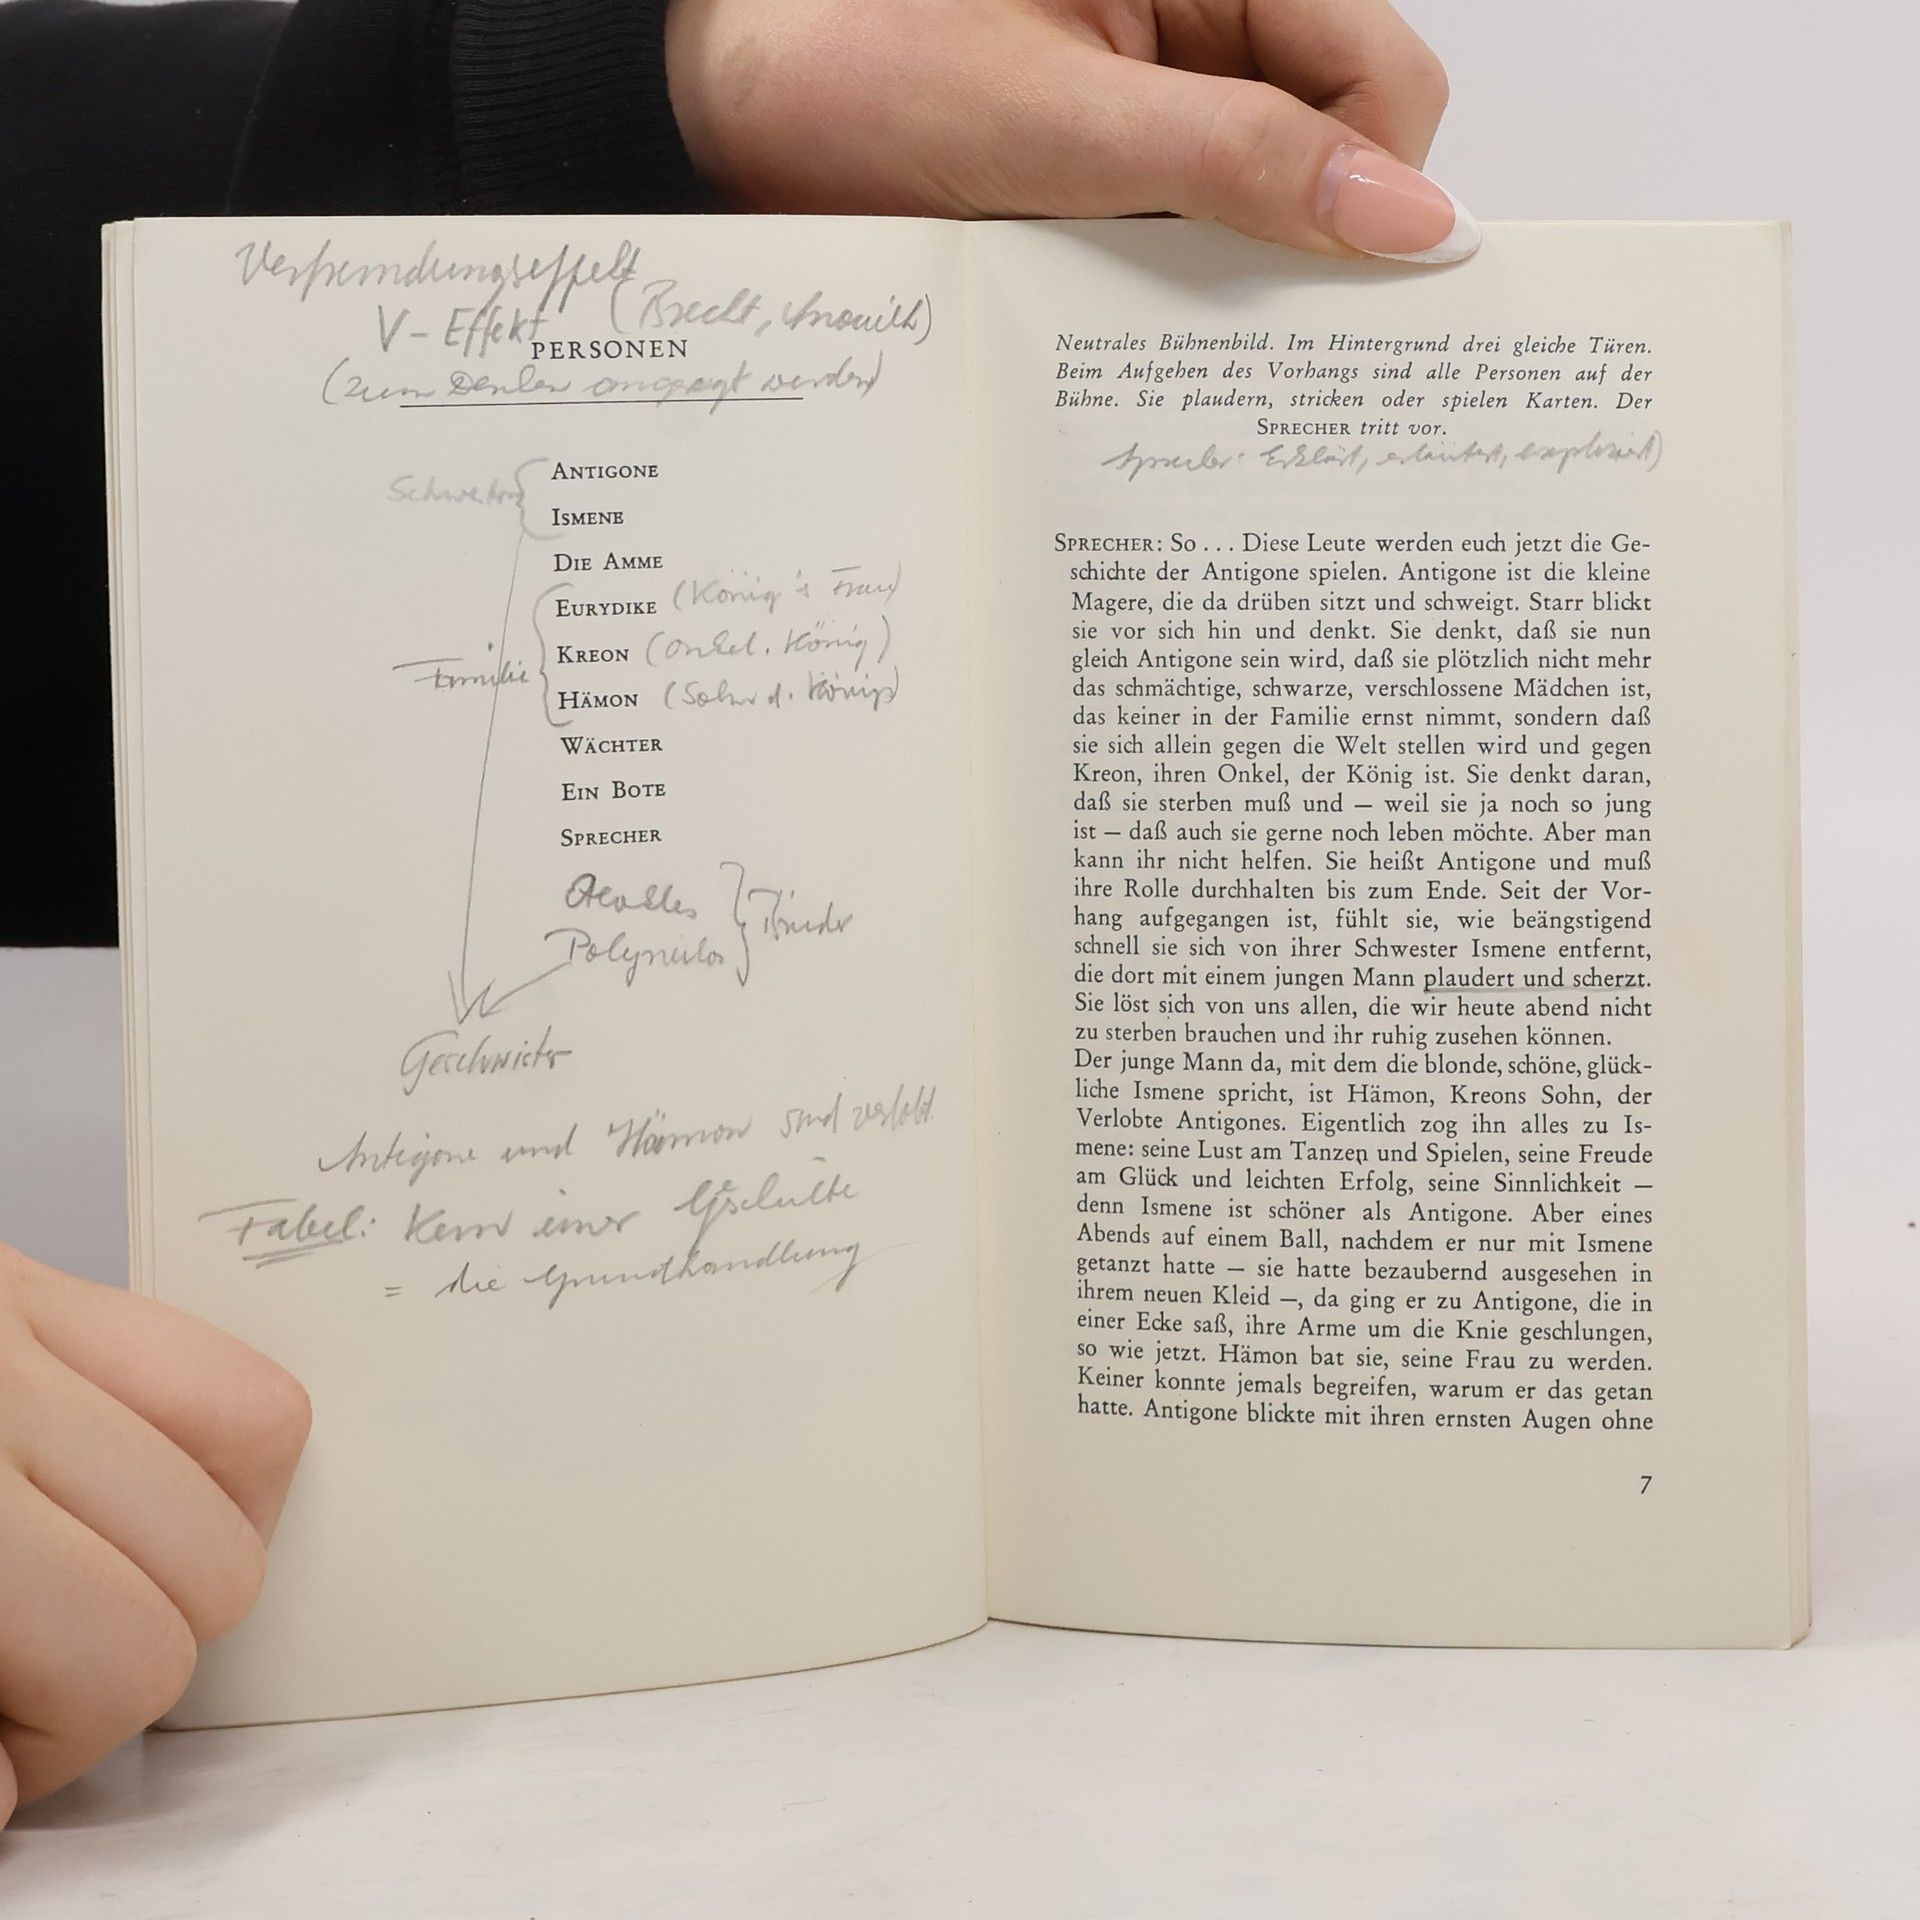 Verfremdungseffekt
V-Effekt (Brecht, Anouilh)
PERSONEN
(zum Denken angeregt werden)
ANTIGONE
Schwestern
ISMENE
DIE AMME
EURYDIKE (König's Frau)
KREON (Onkel. König)
Familie
HÄMON (Sohn d. Königs)
WÄCHTER
EIN BOTE
SPRECHER
Brüder
Geschwister
Antigone und Hämon sind verlobt.
Fabel: Kern einer Geschichte
= die Grundhandlung
Neutrales Bühnenbild. Im Hintergrund drei gleiche Türen.
Beim Aufgehen des Vorhangs sind alle Personen auf der
Bühne. Sie plaudern, stricken oder spielen Karten. Der
SPRECHER tritt vor.
Sprecher: Erklärt, erläutert,
SPRECHER: So... Diese Leute werden euch jetzt die Ge-
schichte der Antigone spielen. Antigone ist die kleine
Magere, die da drüben sitzt und schweigt. Starr blickt
sie vor sich hin und denkt. Sie denkt, daß sie nun
gleich Antigone sein wird, daß sie plötzlich nicht mehr
das schmächtige, schwarze, verschlossene Mädchen ist,
das keiner in der Familie ernst nimmt, sondern daß
sie sich allein gegen die Welt stellen wird und gegen
Kreon, ihren Onkel, der König ist. Sie denkt daran,
daß sie sterben muß und — weil sie ja noch so jung
ist — daß auch sie gerne noch leben möchte. Aber man
kann ihr nicht helfen. Sie heißt Antigone und muß
ihre Rolle durchhalten bis zum Ende. Seit der Vor-
hang aufgegangen ist, fühlt sie, wie beängstigend
schnell sie sich von ihrer Schwester Ismene entfernt,
die dort mit einem jungen Mann plaudert und scherzt.
Sie löst sich von uns allen, die wir heute abend nicht
zu sterben brauchen und ihr ruhig zusehen können.
Der junge Mann da, mit dem die blonde, schöne, glück-
liche Ismene spricht, ist Hämon, Kreons Sohn, der
Verlobte Antigones. Eigentlich zog ihn alles zu Is-
mene: seine Lust am Tanzen und Spielen, seine Freude
am Glück und leichten Erfolg, seine Sinnlichkeit —
denn Ismene ist schöner als Antigone. Aber eines
Abends auf einem Ball, nachdem er nur mit Ismene
getanzt hatte — sie hatte bezaubernd ausgesehen in
ihrem neuen Kleid —, da ging er zu Antigone, die in
einer Ecke saß, ihre Arme um die Knie geschlungen,
so wie jetzt. Hämon bat sie, seine Frau zu werden.
Keiner konnte jemals begreifen, warum er das getan
hatte. Antigone blickte mit ihren ernsten Augen ohne
7